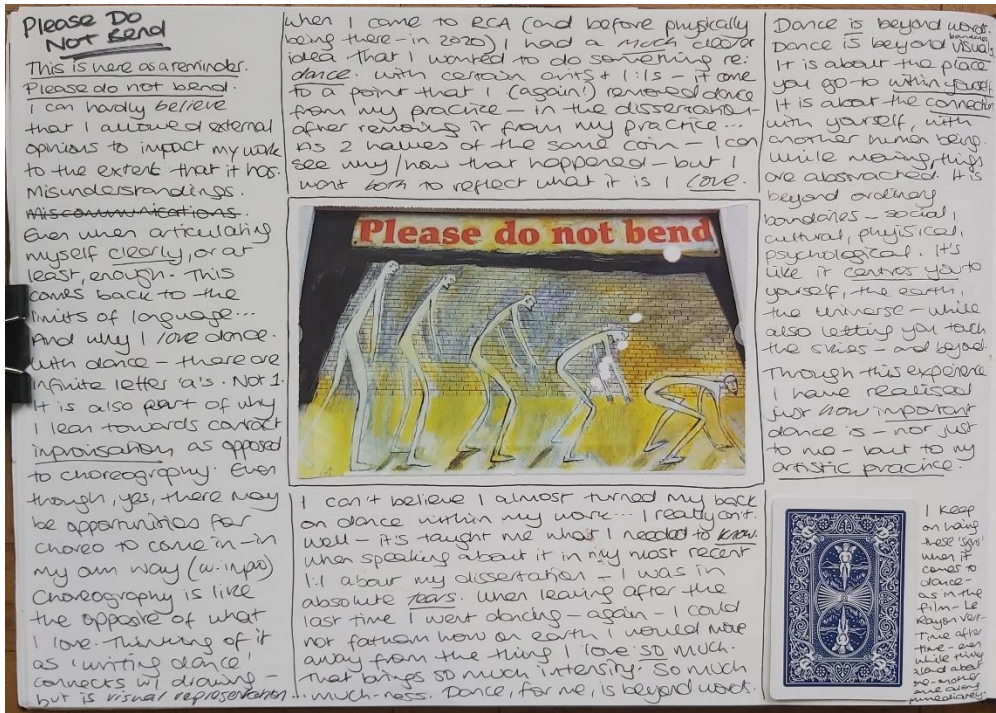 Please Do
Not Bend
This is here as a reminder.
Please do not bend.
I can hardly believe
that I allowed external
opinions to impact my work
to the extent that it has.
Misunderstandings.
Miscommunications.
Even when articulating
myself clearly, or at
least, enough. This
comes back to the
limits of language...
And why I love dance.
With dance - there are
infinite letter 'a's. Not 1.
It is also part of why
I lean towards contact
improvisation as opposed
to choreography. Even
though, yes, there may
be opportunities for
choreo to come in - in
my own way (w. impro)
Choreography is like
the opposite of what
I love. Thinking of it
as 'writing dance'
connects w/ drawing -
but is visual representation...
When I came to RCA (and before physically
being there - in 2020) I had a much clearer
idea that I wanted to do something re:
dance. With certain crits + 1:1s - it came
to a point that I (again!) removed dance
from my practice - in the dissertation -
after removing it from my practice...
As 2 halves of the same coin - I can
see why/how that happened - but I
want both to reflect what it is I love.
Please do not bend
I can't believe I almost turned my back
on dance within my work... I really can't.
Well - it's taught me what I needed to know.
When speaking about it in my most recent
1:1 about my dissertation - I was in
absolute tears. When leaving after the
last time I went dancing - again - I could
not fathom how on earth I would move
away from the thing I love so much.
That brings so much intensity. So much
...much-ness. Dance, for me, is beyond words.
Dance is beyond words.
Dance is beyond visual
It is about the place
you go-to within yourself.
It is about the connection
with yourself, with
another human being.
While moving, things
are abstracted. It is
beyond ordinary
bondaries - social,
cultural, physical,
psychological. It's
like it centres you to
yourself, the earth,
the universe - while
also letting you touch
the skies - and beyond.
Through this experience
I have realised
just how important
dance is - not just
to me - but to my
artistic practice.
I keep
on having
these 'signs'
when it
comes to
dance -
as in the
film - Le
Rayon Vert -
Time after
time - even
while thinking
aloud about
me - another
one
immediately.